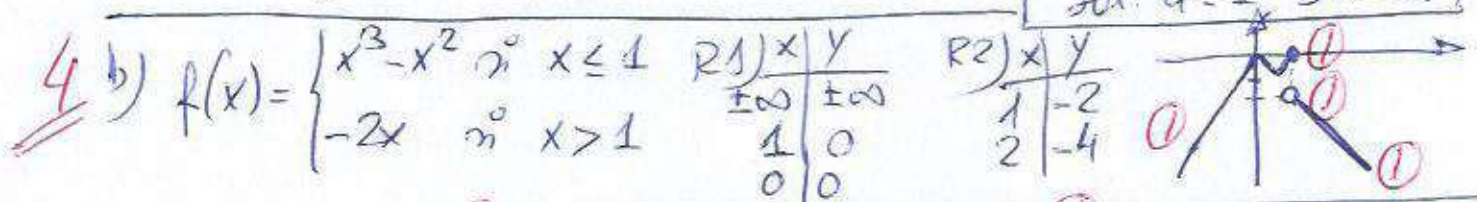 4 b) f(x) = { x³ - x² si x ≤ 1
-2x si x > 1
R1) x | y
±∞ | ±∞
1 | 0
0 | 0
R2) x | y
1 | -2
2 | -4
①
①
①
①